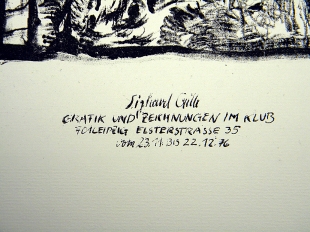 Sighard Gille
GRAFIK UND ZEICHNUNGEN IM KLUB
701 LEIPZIG ELSTERSTRASSE 35
vom 23.11. BIS 22.12.76